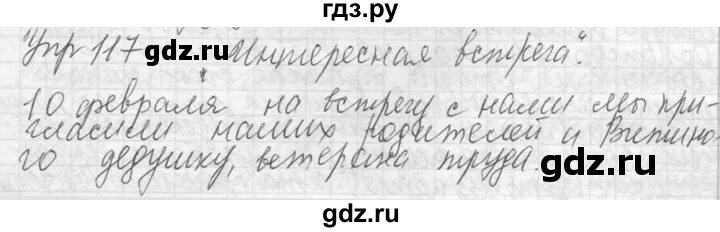 гдз.ру
Упр 117 "Интересная встреча".
gdz.ru gdz.ru
10 февраля на встречу с нами мы при-
гласили наших родителей и Витино-
го дедушку, ветерана труда.
gdz.ru gdz.ru
gdz.ru